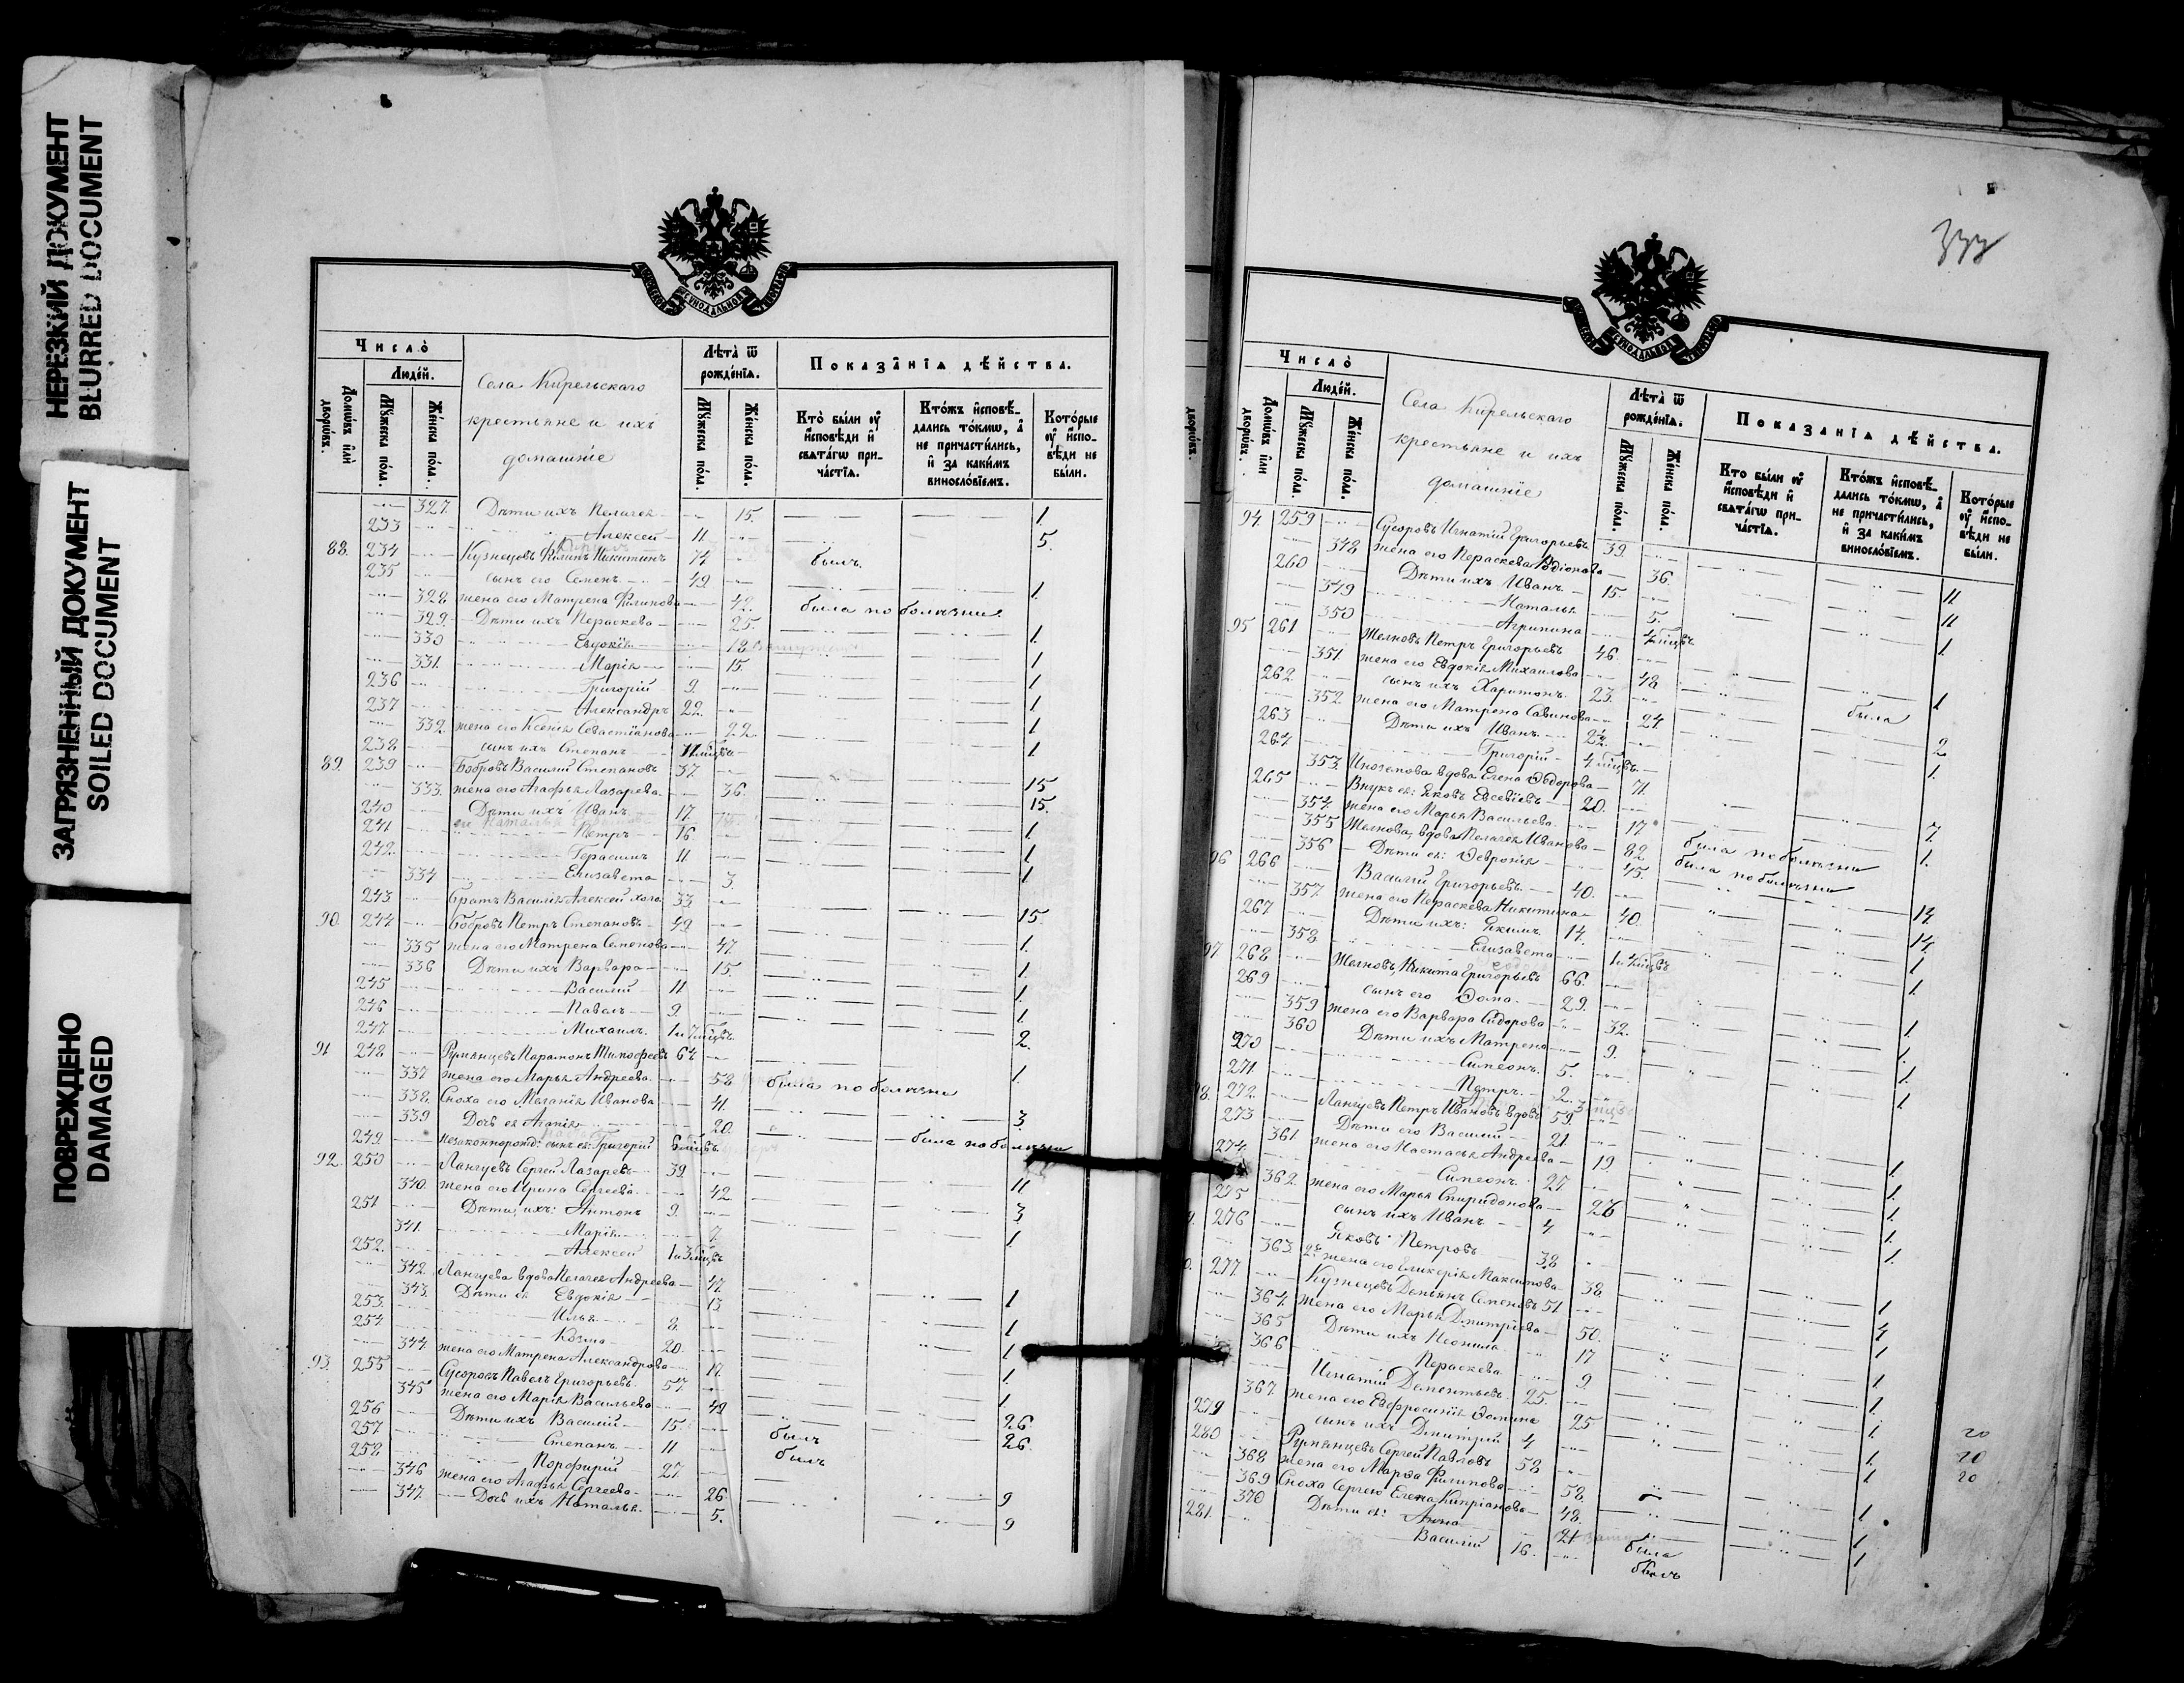 НЕРЕЗКИЙ ДОКУМЕНТ
BLURRED DOCUMENT
ЗАГРЯЗНЕННЫЙ ДОКУМЕНТ
SOILED DOCUMENT
ПОВРЕЖДЕНО
DAMAGED
Число̀
Людей.
Домѡвъ или дворѡвъ.
Мꙋжеска пола.
Женска пола.
Села Кирельскаго
крестьяне и ихъ
домашніе
Лѣта̀ ѿ рожденїѧ.
Мꙋжеска пола.
Женска пола.
Показанїѧ дѣйства.
Кто были ᲂу҆ исповѣди и свѧтагѡ причастїѧ.
Ктожъ исповѣдались токмѡ, а не причастились, и за какимъ винословїемъ.
Которые ᲂу҆ исповѣди не были.
327. Дѣти ихъ Пелагея 15. 1
233 Алексей 11. 5.
88. 234 Кузнецовъ Филипъ Никитинъ 74 былъ
235 сынъ его Семенъ 49. 1.
328 жена его Матрена Филипова 42. была по болѣзни
329. Дѣти ихъ Параскева 25. 1.
330 Евдокія 18 1
331. Марія 15. 1
236 Григорій 9. 1
237 Александръ 22. 1
332. жена его Ксенія Севастіанова 22 1.
238 сынъ ихъ Степанъ
89. 239 Бобровъ Василий Степановъ 37. 15
333. жена его Агафья Лазарева 36. 15.
240 Дѣти ихъ Иванъ 17. 1
241 Петръ 16. 1
242. Герасимъ 11. 1
334 Елизавета 3.
243 Братъ Василія Алексей холо. 33. 15.
90. 244 Бобровъ Петръ Степановъ 49 1.
335 жена его Матрена Семенова 47. 1.
336 Дѣти ихъ Варвара 15. 1.
245 Василий 11 1
246 Павелъ 9. 2.
247. Михаилъ. 1 и 7 мѣцвъ
91 248 Румянцевъ Парамонъ Тимофеевъ 64 1.
337 жена его Марья Андреева 58 была по болѣзни
338. Сноха его Меланія Иванова 41. 3.
339 Дочь ея Агапія 20. была по болѣзни
249 незаконнорожд: сынъ ея: Григорий 6 мѣцвъ.
92. 250 Лангуевъ Сергей Лазаревъ 39. 11
340. жена его Ирина Сергеева 42 3
251 Дѣти ихъ: Антонъ 9. 1.
341. Марія 7.
252. Алексей 1 и 3 мѣцвъ
342. Лангуева вдова Пелагея Андреева 47. 1
343. Дѣти ея Евдокія 13 1
253. Илья 8. 1
254 Козма 20. 1.
344 жена его Матрена Александрова 19. 1
93. 255 Сусоровъ Павелъ Григорьевъ 57 26
345 жена его Марія Васильева 49 26.
256 Дѣти ихъ Василій 15. былъ
257 Степанъ 11 былъ
258 Порфирій 27 9
346 жена его Агафья Сергеева 26. 9
347. Дочь ихъ Наталья 5.
333
Число̀
Людей.
Домѡвъ или дворѡвъ.
Мꙋжеска пола.
Женска пола.
Села Кирельскаго
крестьяне и ихъ
домашніе
Лѣта̀ ѿ рожденїѧ.
Мꙋжеска пола.
Женска пола.
Показанїѧ дѣйства.
Кто были ᲂу҆ исповѣди и свѧтагѡ причастїѧ.
Ктожъ исповѣдались токмѡ, а не причастились, и за какимъ винословїемъ.
Которые ᲂу҆ исповѣди не были.
94. 259 Сусоровъ Игнатій Григорьевъ 39. 11
348 жена его Пераскева Родіонова 36. 11
260 Дѣти ихъ Иванъ 15. 1.
349 Наталья 5.
350 Агрипина 4 мѣцвъ
95 261 Желновъ Петръ Григорьевъ 46. 1
351. жена его Евдокія Михаилова 48 была
262. сынъ ихъ Харитонъ. 23. 2
352. жена его Матрена Савинова 24. 1.
263 Дѣти ихъ Иванъ
264. Григорій 4 мѣцвъ.
353. вдова Елена Ѳедорова 71. 7.
265 Внукъ ея: Яковъ Евсевіевъ 20. 1.
354. жена его Марья Васильева 17
355 Желнова, вдова Пелагея Иванова 82 была по болѣзни
356 Дѣти ея: Ѳевронія 45. была по болѣзни
96 266 Василій Григорьевъ 40. 14.
357 жена его Пераскева Никитина 40. 14.
267 Дѣти ихъ: Якимъ 14. 1
358. Елизавета 1.
97 268 Желновъ, Никита Григорьевъ 66. 1.
269 сынъ его Ѳома 29. 1.
359 жена его Варвара Сидорова 32. 1.
360 Дѣти ихъ Матрена 9. 1.
270 Симеонъ. 5.
271. Петръ 2.
98. 272. Лангуевъ Петръ Ивановъ вдовъ 59. 1.
273 Дѣти его Василий 21. 1.
361 жена его Настасья Андреева 19. 1.
274. Симеонъ 27. 1.
362. жена его Марья Спиридонова 26
275 сынъ ихъ Иванъ 4
276 Яковъ Петровъ 38 1
363. 2я жена его Гликерія Максимова 38. 4
277. Кузнецовъ Демьянъ Семеновъ 51 1
364. жена его Марья Дмитріева 50. 1
365 Дѣти ихъ Неонила 17 1.
366 Пераскева 9. 1.
Игнатий Дементьевъ 25. 1.
367. жена его Евфросинія Ѳомина 25 1
279 сынъ ихъ Дмитрій 4
280 Румянцевъ Сергей Павловъ 58 1.
368 жена его Марѳа Филипова 58. 1
369 Сноха Сергею Елена Кипріанова 48. 1
370 Дѣти ея: Анна 21 была
281. Василій 16. былъ
20
20
20